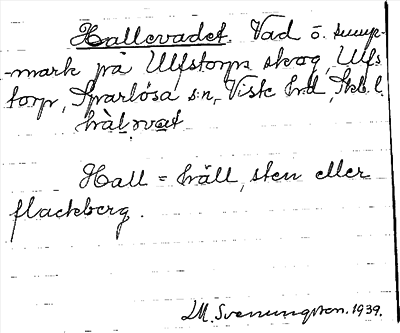 Hallevadet. Vad o. sump-
-mark på Ulfstorps skog, Ulfs
torp, Sparlösa s:n, Viste hd, Skb. l.
hàl, vat
Hall = häll, sten eller
flackberg.
M. Svenungson. 1939.